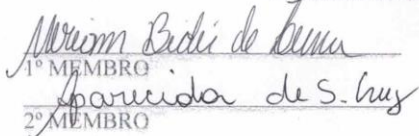 Miriam Bidü de
1º MEMBRO
Aparecida de S. Cruz
2º MEMBRO